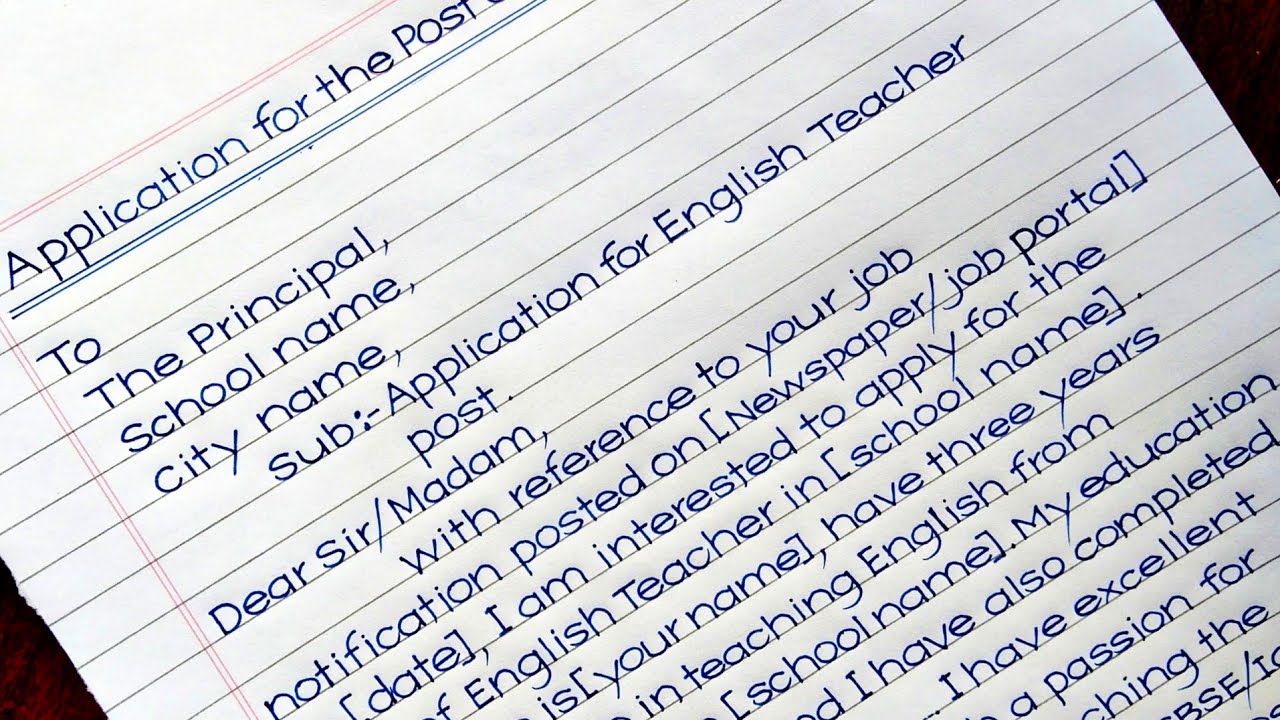 Application for the Post
To
The Principal,
School name,
city name,
Sub:- Application for English Teacher
post.
Dear Sir/Madam,
with reference to your job
notification posted on [Newspaper/job portal]
[date], I am interested to apply for the
of English Teacher in [school name].
is [your name], have three years
in teaching English from
[school name]. My education
I have also completed
I have excellent
a passion for
the